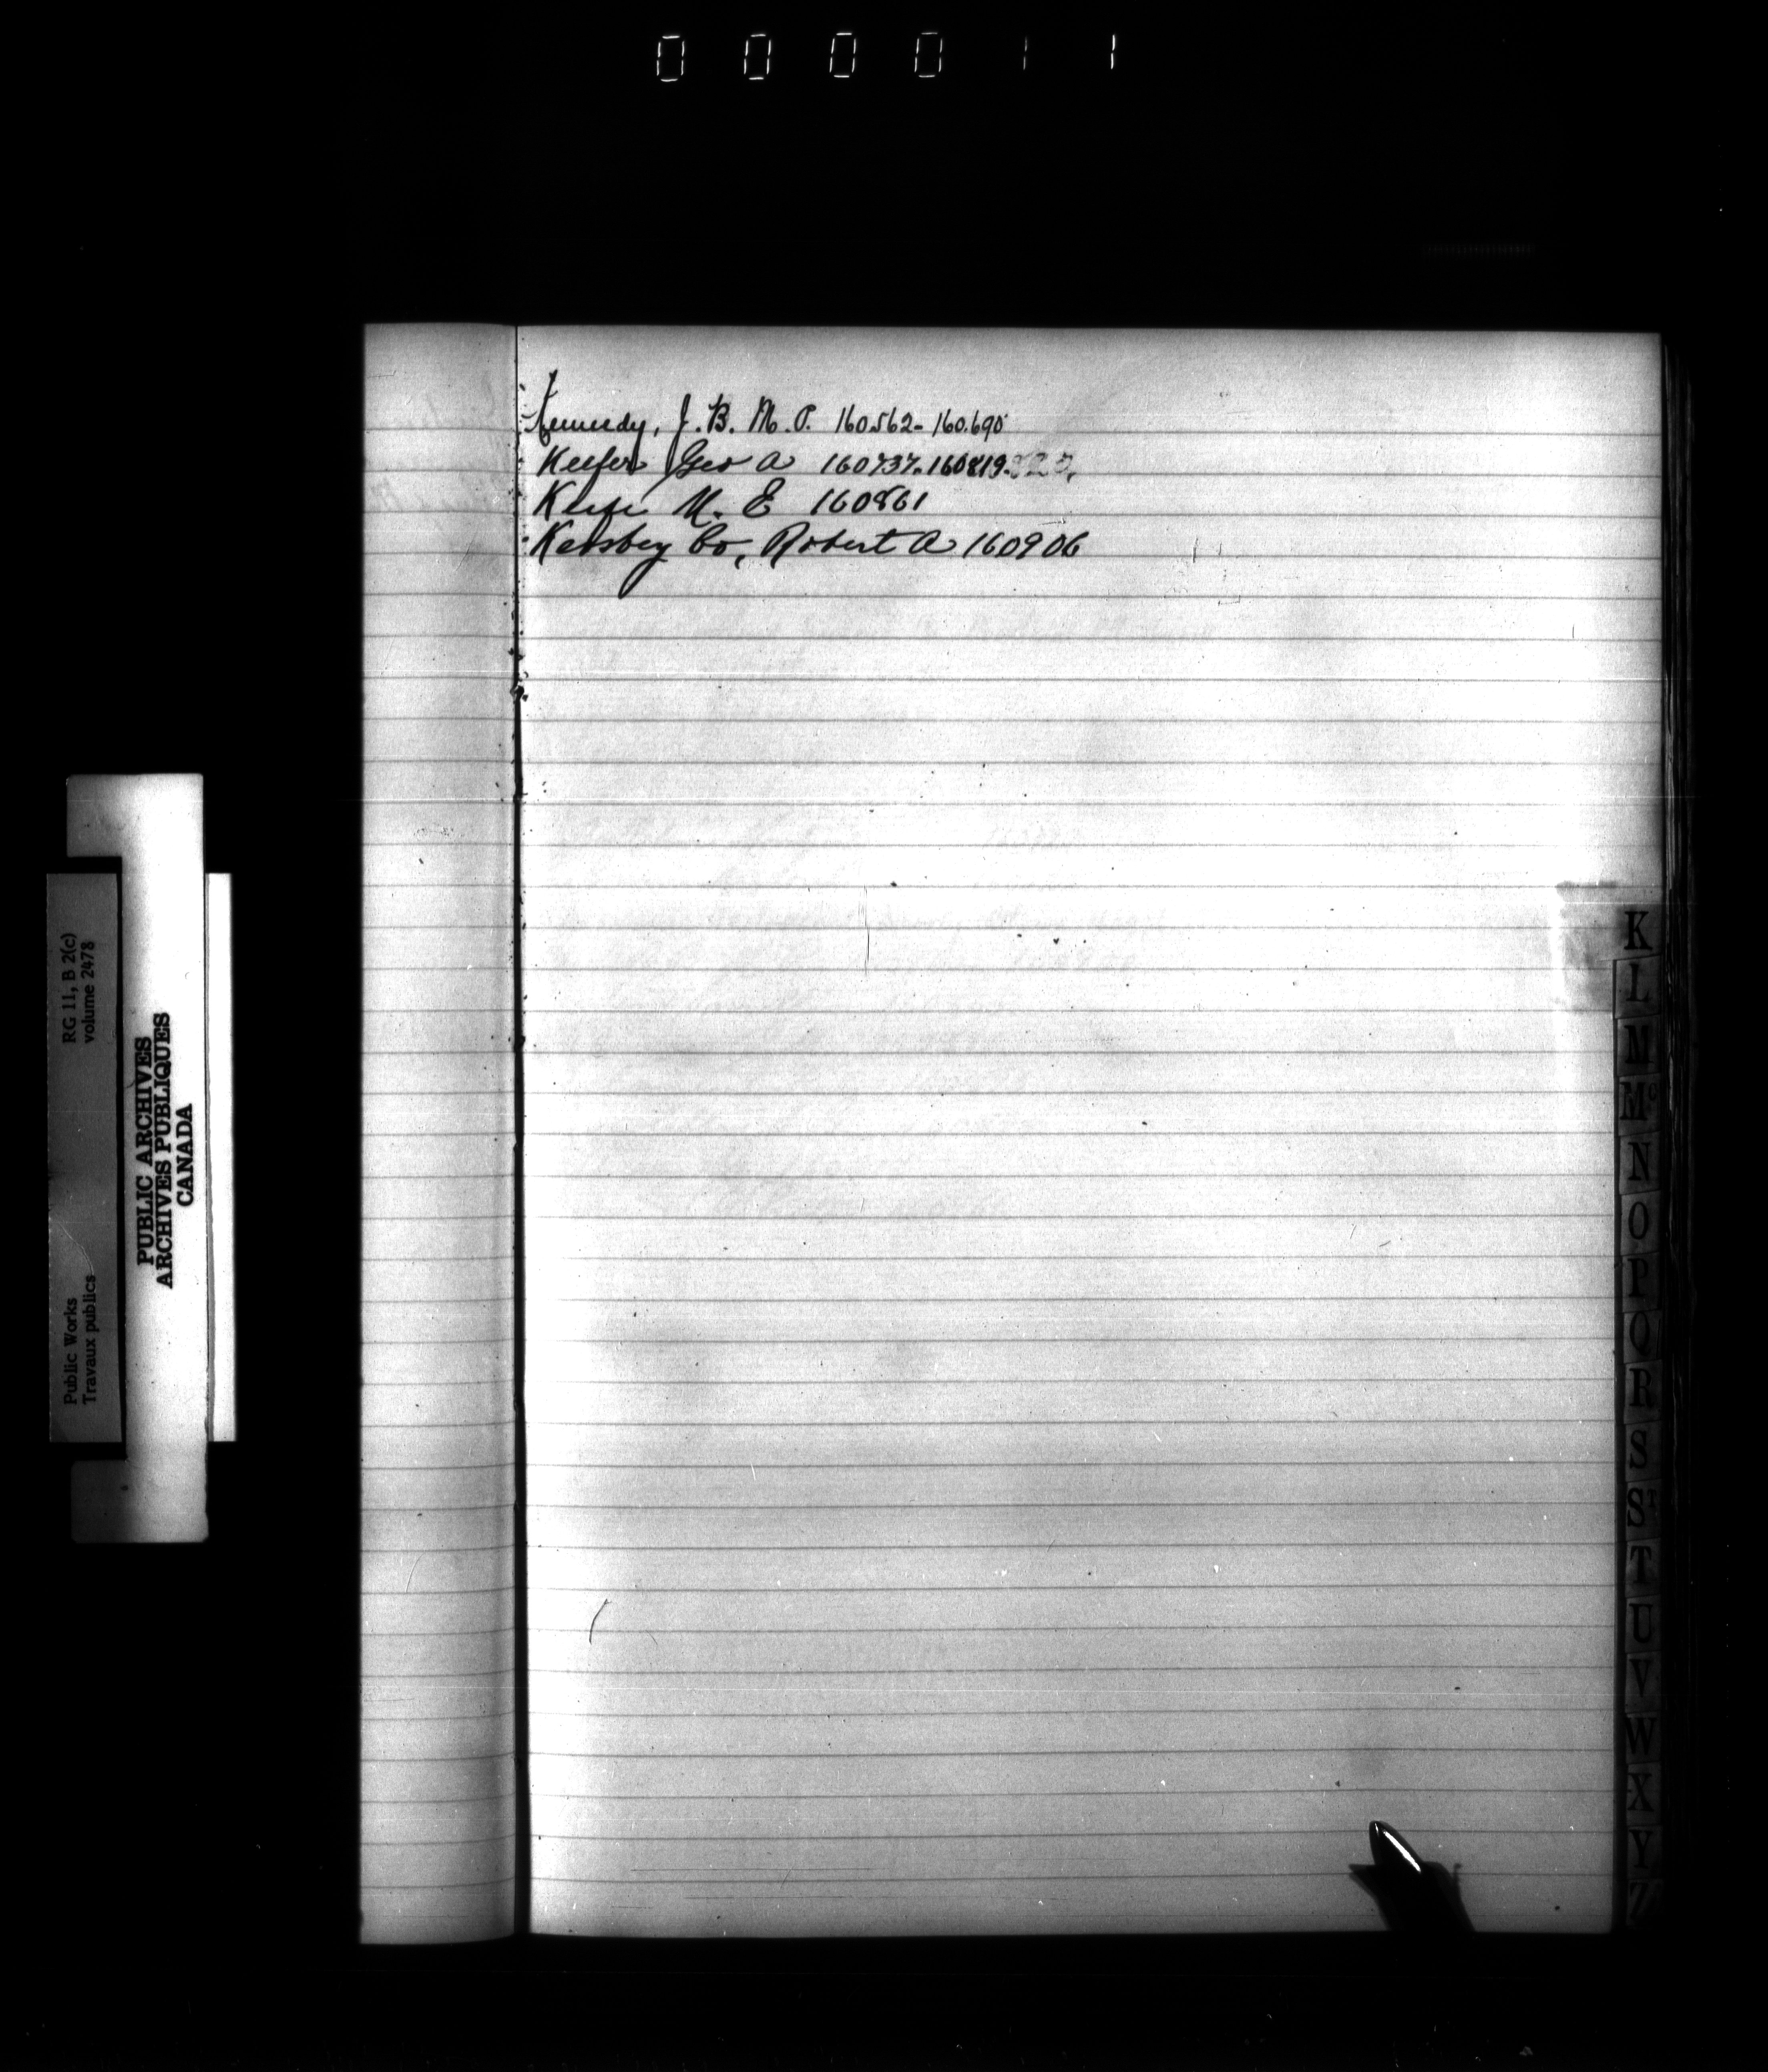 000011
Kennedy, J. B. M. P. 160562- 160.690
Keefer Geo A 160737. 160819. 820.
Keefe M. E 160861
Keasbey Co, Robert A 160906
K
L
M
Mc
N
O
P
Q
R
S
ST
T
U
V
W
X
Y
Z
RG 11, B 2(c)
volume 2478
Public Works
Travaux publics
PUBLIC ARCHIVES
ARCHIVES PUBLIQUES
CANADA